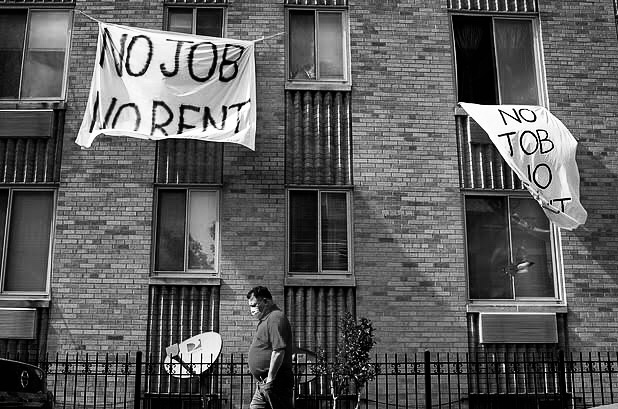 NO JOB
NO RENT
NO
TOB
NO